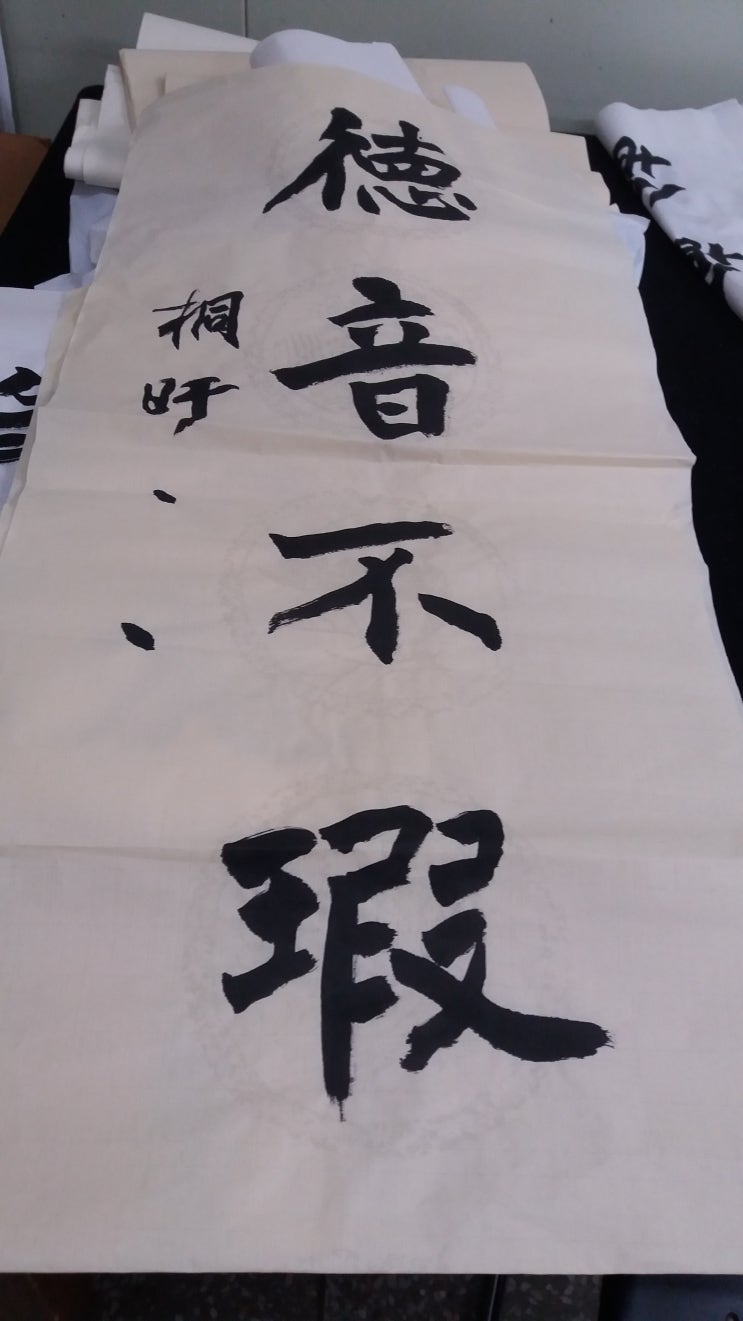 德音不瑕
桐旴